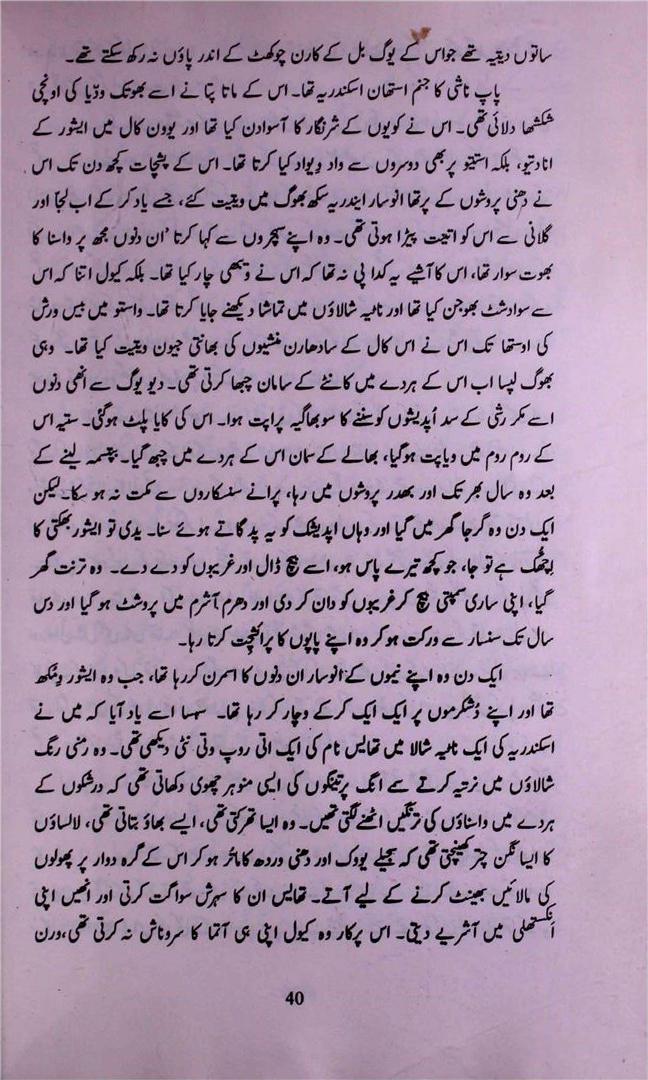 ساتوں دیتیہ تھے جو اس کے یوگ بل کے کارن چوکھٹ کے اندر پاؤں نہ رکھ سکتے تھے۔
پاپ ناشی کا جنم استھان اسکندریہ تھا۔ اس کے ماتا پتا نے اسے بھوتک ودّیا کی اونچی
شکشھا دلائی تھی۔ اس نے کویوں کے شرنگار کا آسوادن کیا تھا اور یوون کال میں ایشور کے
انادتیو، بلکہ استیتو پر بھی دوسروں سے واد ویواد کیا کرتا تھا۔ اس کے پشچات کچھ دن تک اس
نے دھنی پروشوں کے پرتھا انوسار ایندریہ سکھ بھوگ میں ویتیت کئے، جسے یاد کر کے اب لجا اور
گلانی سے اس کو اتینت پیڑا ہوتی تھی۔ وہ اپنے سہچروں سے کہا کرتا 'ان دنوں مجھ پر واسنا کا
بھوت سوار تھا، اس کا آشیے یہ کداپی نہ تھا کہ اس نے ویبھی چار کیا تھا۔ بلکہ کیول اتنا کہ اس
سے سوادشٹ بھوجن کیا تھا اور ناٹیہ شالاؤں میں تماشا دیکھنے جایا کرتا تھا۔ واستو میں بیس ورش
کی اوستھا تک اس نے اس کال کے سادھارن منشیوں کی بھانتی جیون ویتیت کیا تھا۔ وہی
بھوگ لپسا اب اس کے ہردے میں کانٹے کے سامان چبھا کرتی تھی۔ دیو یوگ سے انھی دنوں
اسے مکر رشی کے سد اُپدیشوں کو سننے کا سوبھاگیہ پراپت ہوا۔ اس کی کایا پلٹ ہوگئی۔ ستیہ اس
کے روم روم میں ویاپت ہوگیا، بھالے کے سمان اس کے ہردے میں چبھ گیا۔ بپتسمہ لینے کے
بعد وہ سال بھر تک اور بھدر پروشوں میں رہا، پرانے سنسکاروں سے مکت نہ ہو سکا۔ لیکن
ایک دن وہ گرجا گھر میں گیا اور وہاں اپدیشک کو یہ پد گاتے ہوئے سنا۔ یدی تو ایشور بھکتی کا
اِچھُک ہے تو جا، جو کچھ تیرے پاس ہو، اسے بیچ ڈال اور غریبوں کو دے دے۔ وہ ترنت گھر
گیا، اپنی ساری سمپتی بیچ کر غریبوں کو دان کر دی اور دھرم آشرم میں پروشٹ ہو گیا اور دس
سال تک سنسار سے ورکت ہو کر وہ اپنے پاپوں کا پرائشچت کرتا رہا۔
ایک دن وہ اپنے نیموں کے انوسار ان دنوں کا اسمرن کر رہا تھا، جب وہ ایشور ومُکھ
تھا اور اپنے دُشکرموں پر ایک ایک کرکے وچار کر رہا تھا۔ سہسا اسے یاد آیا کہ میں نے
اسکندریہ کی ایک ناٹیہ شالا میں تھایس نام کی ایک اتی روپ وتی نٹی دیکھی تھی۔ وہ رمنی رنگ
شالاؤں میں نرتیہ کرتے سے انگ پرتینگوں کی ایسی منوہر چھوی دکھاتی تھی کہ درشکوں کے
ہردے میں واسناؤں کی ترنگیں اٹھنے لگتی تھیں۔ وہ ایسا تھرکتی تھی، ایسے بھاؤ بتاتی تھی، لالساؤں
کا ایسا نگن چتر کھینچتی تھی کہ سجیلے یووک اور دھنی وردھ کاماتر ہو کر اس کے گرہ دوار پر پھولوں
کی مالائیں بھینٹ کرنے کے لیے آتے۔ تھایس ان کا سہرش سواگت کرتی اور انھیں اپنی
اَنکستھلی میں آشریے دیتی۔ اس پرکار وہ کیول اپنی ہی آتما کا سروناش نہ کرتی تھی، ورن
40